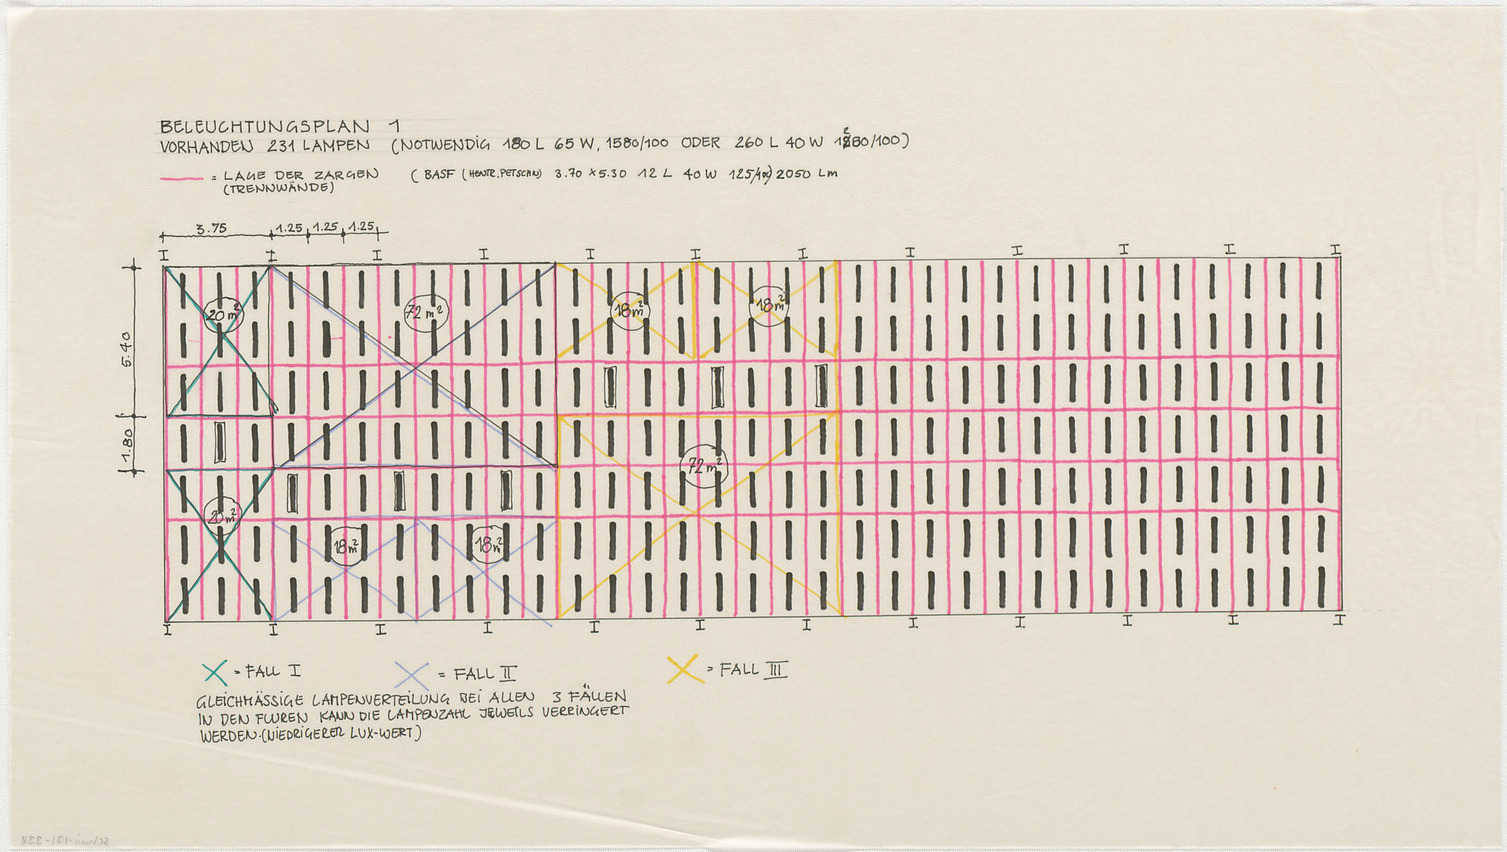 BELEUCHTUNGSPLAN 1
VORHANDEN 231 LAMPEN (NOTWENDIG 180 L 65 W, 1580/100 ODER 260 L 40 W 1280/100)
= LAGE DER ZARGEN (BASF (HENTR. PETSCHN) 3.70 x 5.30 12 L 40 W 125/ 2050 Lm
(TRENNWÄNDE)
3.75 1.25 1.25 1.25
I I I I I I I I I I I I
5.40
1.80
20 m² 72 m² 18 m² 18 m²
72 m²
20 m² 18 m² 18 m²
I I I I I I I I I I I I
= FALL I = FALL II = FALL III
GLEICHMÄSSIGE LAMPENVERTEILUNG BEI ALLEN 3 FÄLLEN
IN DEN FLUREN KANN DIE LAMPENZAHL JEWEILS VERRINGERT
WERDEN. (NIEDRIGERER LUX-WERT)